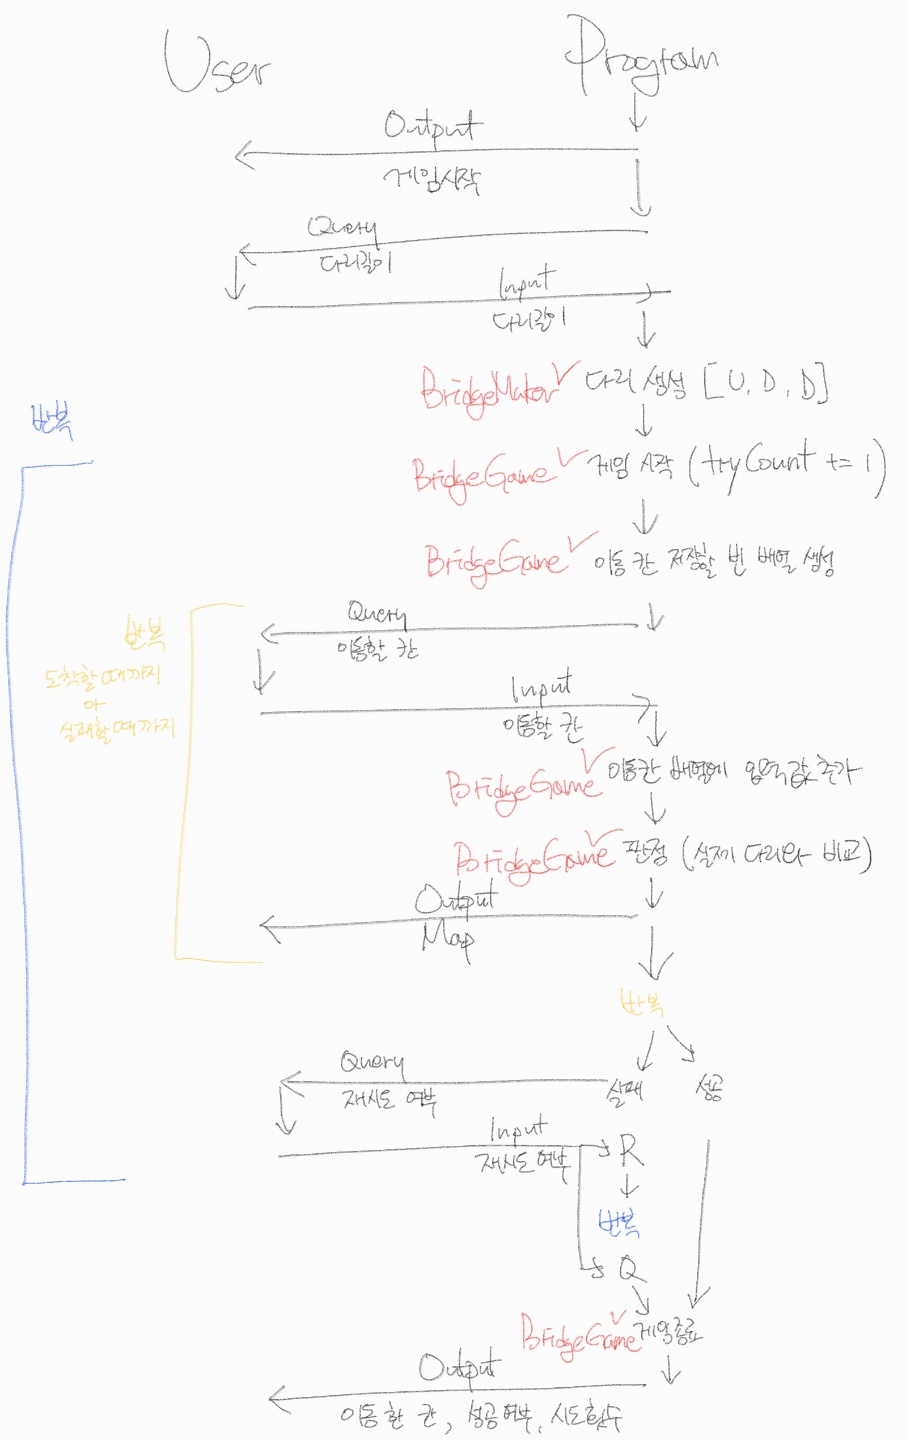 User
Program
Output
게임시작
Query
다리길이
Input
다리길이
BridgeMaker 다리 생성 [U, D, D]
반복
BridgeGame 게임 시작 (tryCount += 1)
BridgeGame 이동 칸 저장할 빈 배열 생성
Query
이동할 칸
반복
도착할 때까지
or
실패할 때까지
Input
이동할 칸
BridgeGame 이동칸 배열에 입력값 추가
BridgeGame 판정 (실제 다리와 비교)
Output
Map
반복
Query
재시도 여부
실패
성공
Input
재시도 여부
R
반복
Q
BridgeGame 게임종료
Output
이동한 칸, 성공여부, 시도횟수